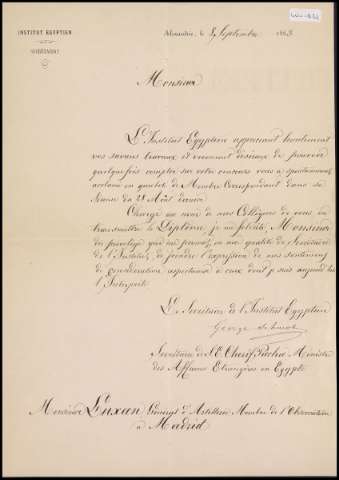 INSTITUT EGYPTIEN
SECRÉTARIAT
Alexandrie, le 5 Septembre 1863
Monsieur
L'Institut Egyptien appréciant hautement
vos savans travaux et vivement désireux de pouvoir
quelque fois compter sur votre concours vous a spontanément
acclamé en qualité de Membre Correspondant dans sa
Séance du 28 Août dernier.
Chargé au nom de nos Collègues de vous en
transmettre le Diplôme, je me félicite, Monsieur
du privilège que me permet, en ma qualité de Secrétaire
de l'Institut, de joindre l'expression de mes sentimens
de considération respectueuse à ceux dont je suis aujourd'hui
l'Interprète
Le Secrétaire de l'Institut Egyptien
George
Secrétaire de S.E. Chérif Pacha Ministre
des Affaires Etrangères en Egypte
Monsieur Luxan Général d'Artillerie Membre de l'Observatoire
à Madrid